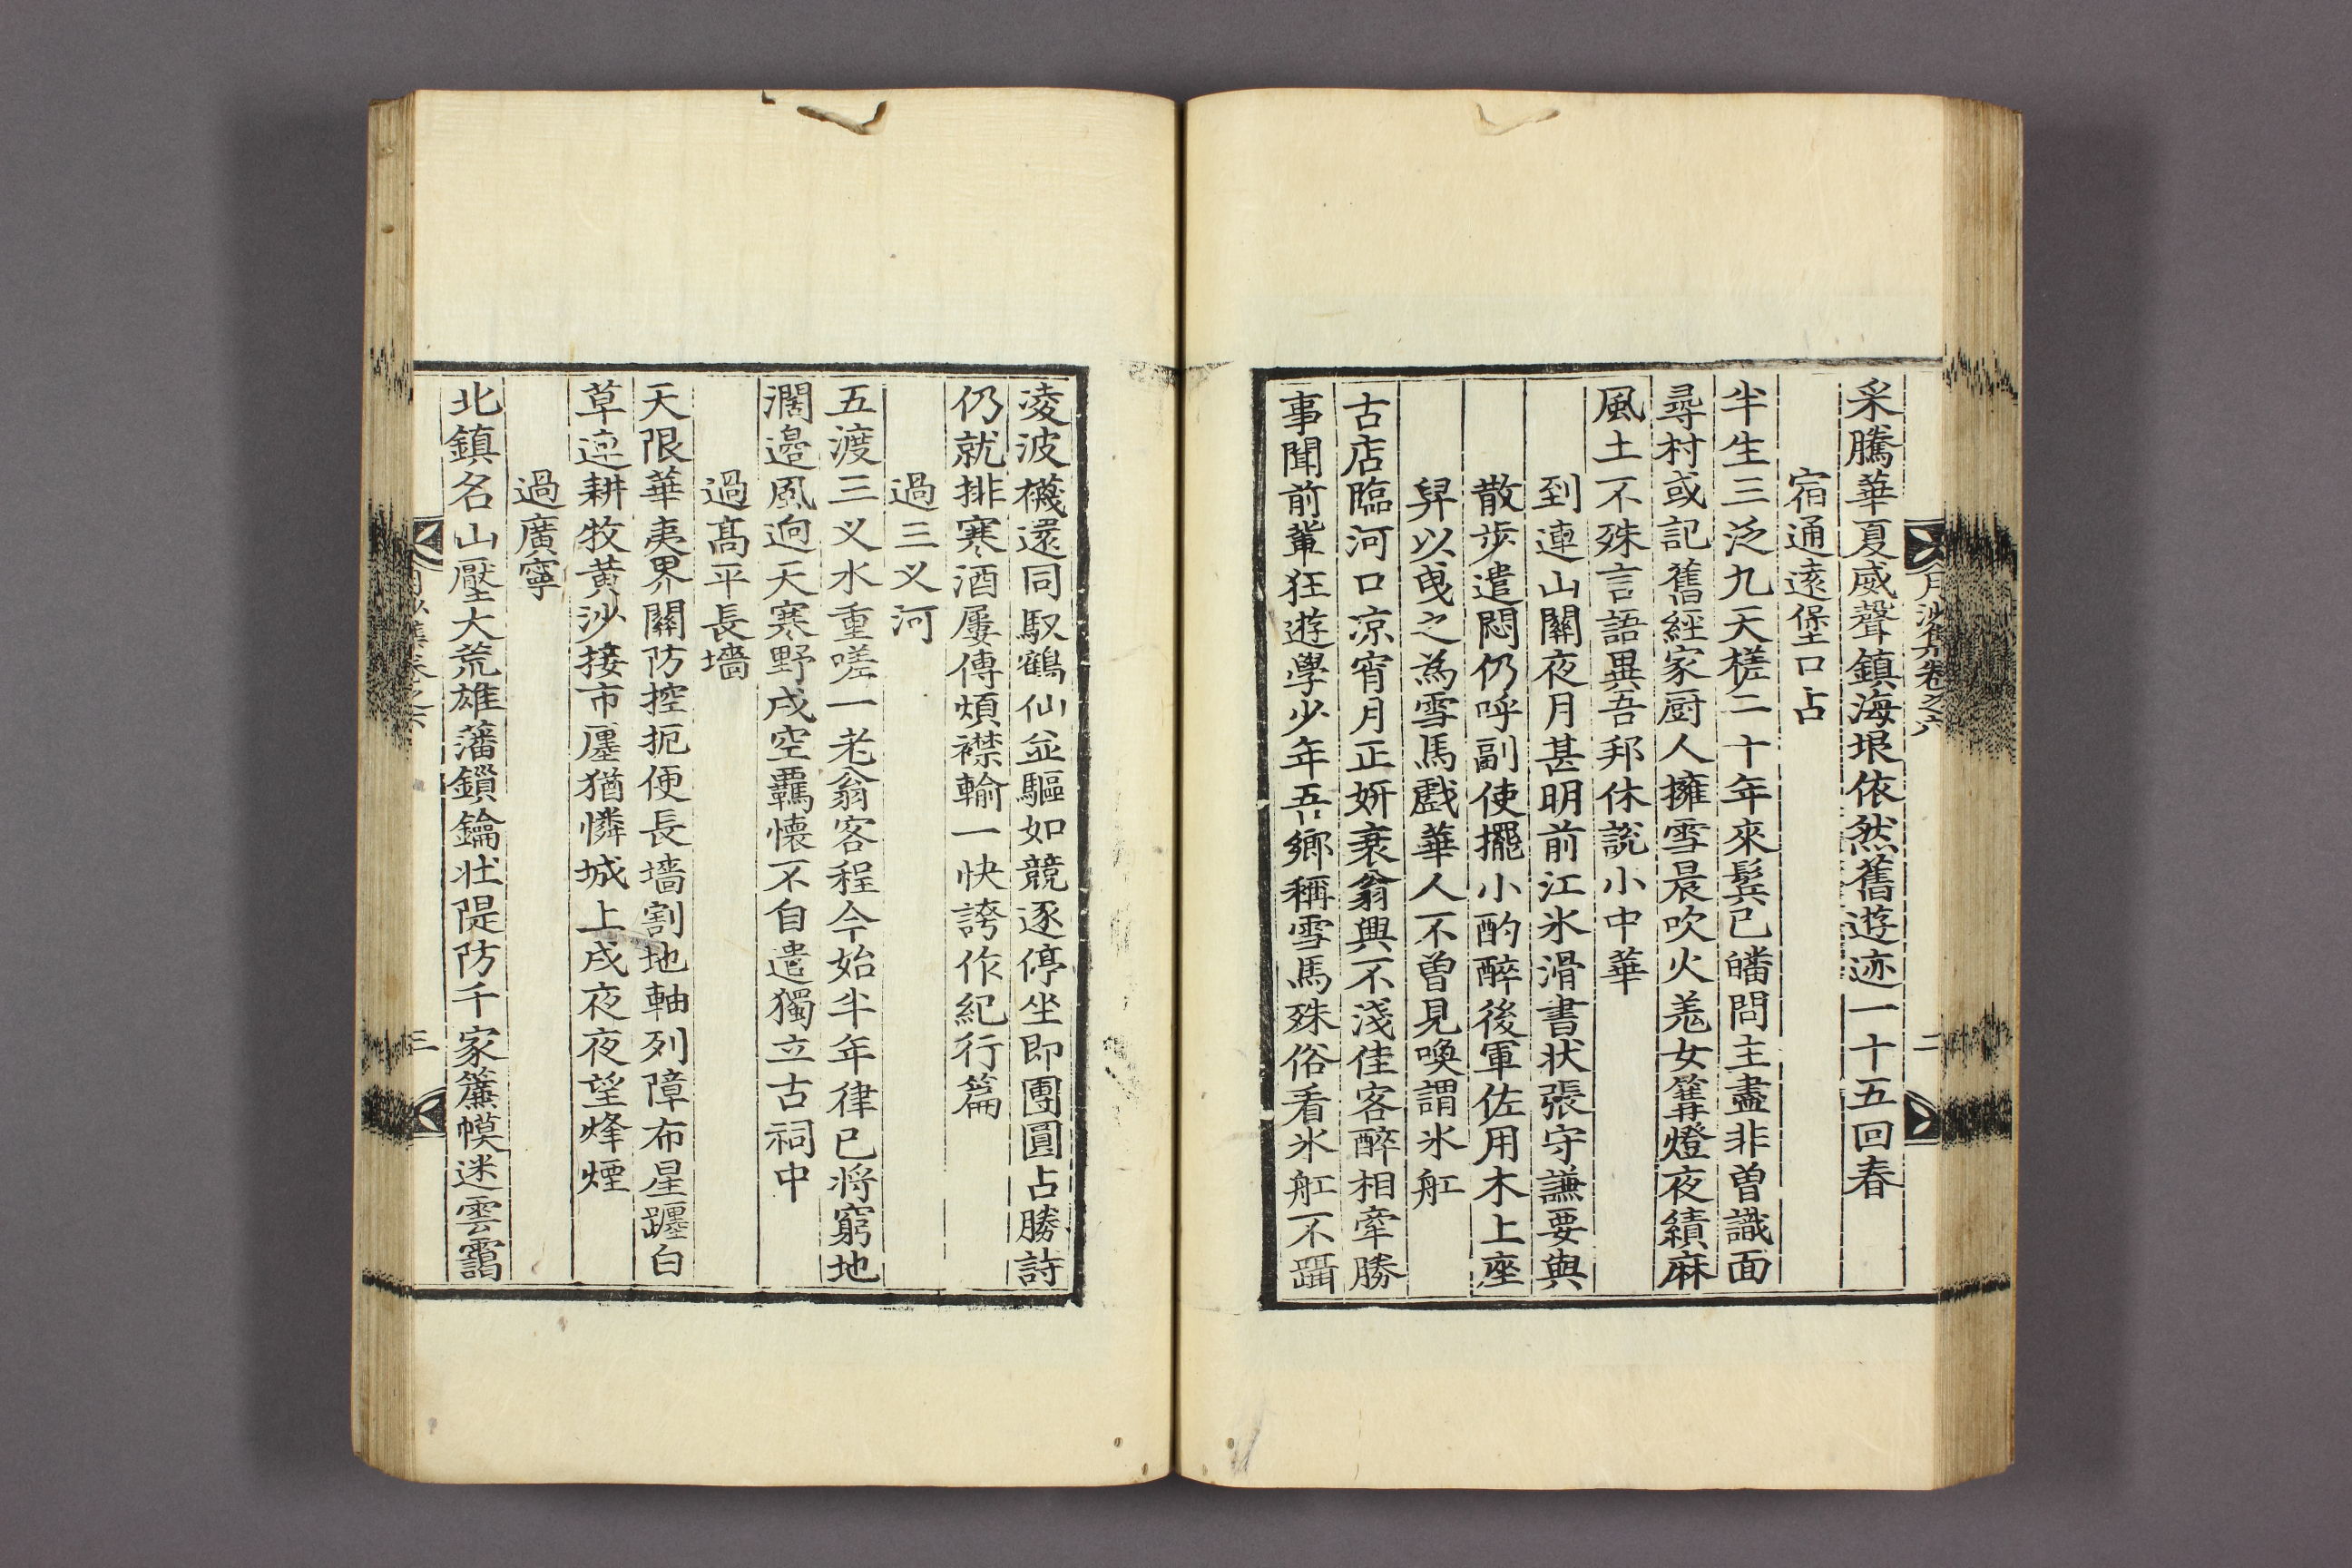 月沙集卷之六
二
采騰華夏威聲鎮海垠依然舊遊迹一十五回春
宿通遠堡口占
半生三泛九天槎二十年來鬂已皤問主盡非曾識面
尋村或記舊經家厨人擁雪晨吹火羗女篝燈夜績麻
風土不殊言語異吾邦休説小中華
到連山關夜月甚明前江氷滑書状張守謙要與
散步遣悶仍呼副使擺小酌醉後軍佐用木上座
舁以曵之為雪馬戲華人不曾見喚謂氷舡
古店臨河河口凉宵月正妍衰翁興不淺佳客醉相牽勝
事聞前軰狂遊學少年吾鄉稱雪馬殊俗看氷舡不躡
凌波襪還同馭鶴仙並驅如競逐停坐即團圓占勝詩
仍就排寒酒屢傳煩襟輸一快誇作紀行篇
過三义河
五渡三义水重嗟一老翁客程今始半年律已將窮地
濶邉風逈天寒野戍空羈懷不自遣獨立古祠中
過髙平長墻
天限華夷界關防控扼便長墻割地軸列障布星躔白
草迷耕牧黄沙接市廛猶憐城上戍夜夜望烽煙
過廣寧
北鎮名山壓大荒雄藩鎖鑰壮隄防千家簾幙迷雲靄
月沙集卷之六
三